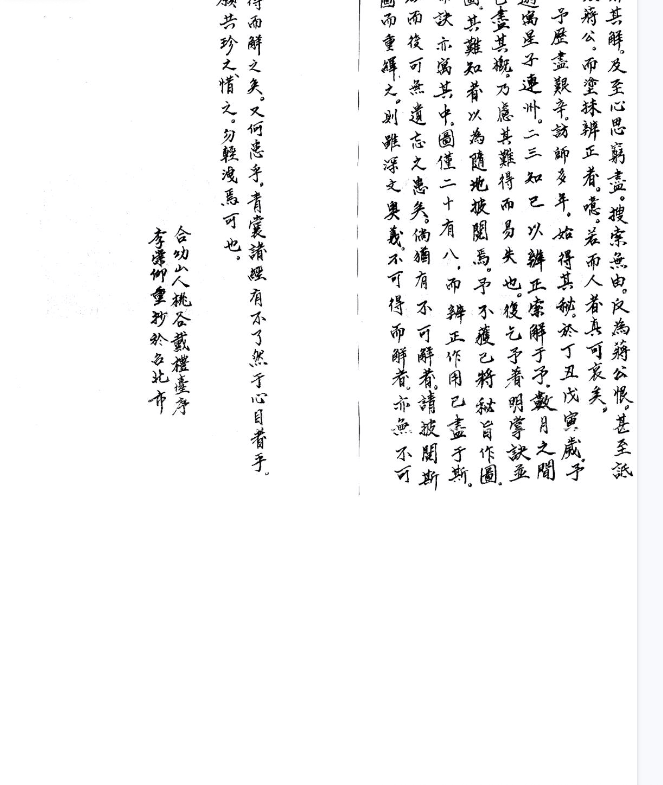 其解。及至心思窮盡。搜索無由。反為蔣公恨。甚至詆
蔣公。而塗抹辨正者。噫。若而人者真可哀矣。
予歷盡艱辛。訪師多年。始得其秘。於丁丑戊寅歲。予
寓星子連州。二三知己以辨正索解于予。數月之間
盡其概。乃慮其難得而易失也。復乞予著明掌訣並
圖。其難知者以為隨地披閱焉。予不獲已將秘旨作圖。
訣亦寓其中。圖僅二十有八。而辨正作用已盡于斯。
而後可無遺忘之患矣。倘猶有不可解者。請披閱斯
圖而重繹之。則雖深文奧義。不可得而解者。亦無不可
得而解之矣。又何患乎。青囊諸經有不了然于心目者乎。
願共珍之惜之。勿輕洩焉可也。
合功山人桃谷戴禮臺序
李崇仰重抄於台北市